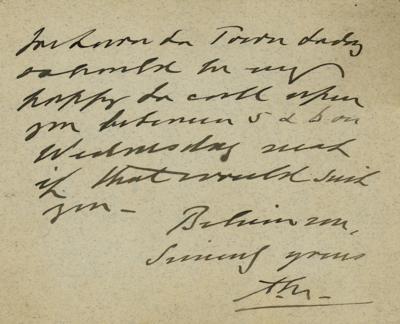 to Town today
& should be very
happy to call upon
you between 5 & 6 on
Wednesday next
if that would suit
you –
Believe me,
Sincerely yours